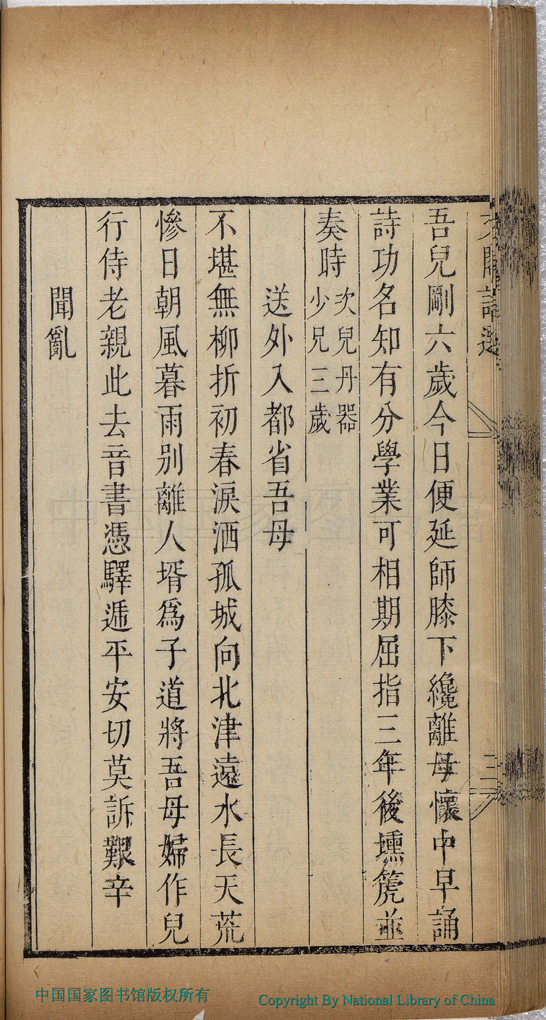 吾兒剛六歲今日便延師膝下纔離母懷中早誦
詩功名知有分學業可相期屈指三年後壎箎並
奏時次兒丹器
少兄三歲
送外入都省吾母
不堪無柳折初春淚洒孤城向北津遠水長天荒
慘日朝風暮雨别離人壻爲子道將吾母婦作兒
行侍老親此去音書憑驛遞平安切莫訴艱辛
聞亂
中国国家图书馆版权所有
Copyright By National Library of China